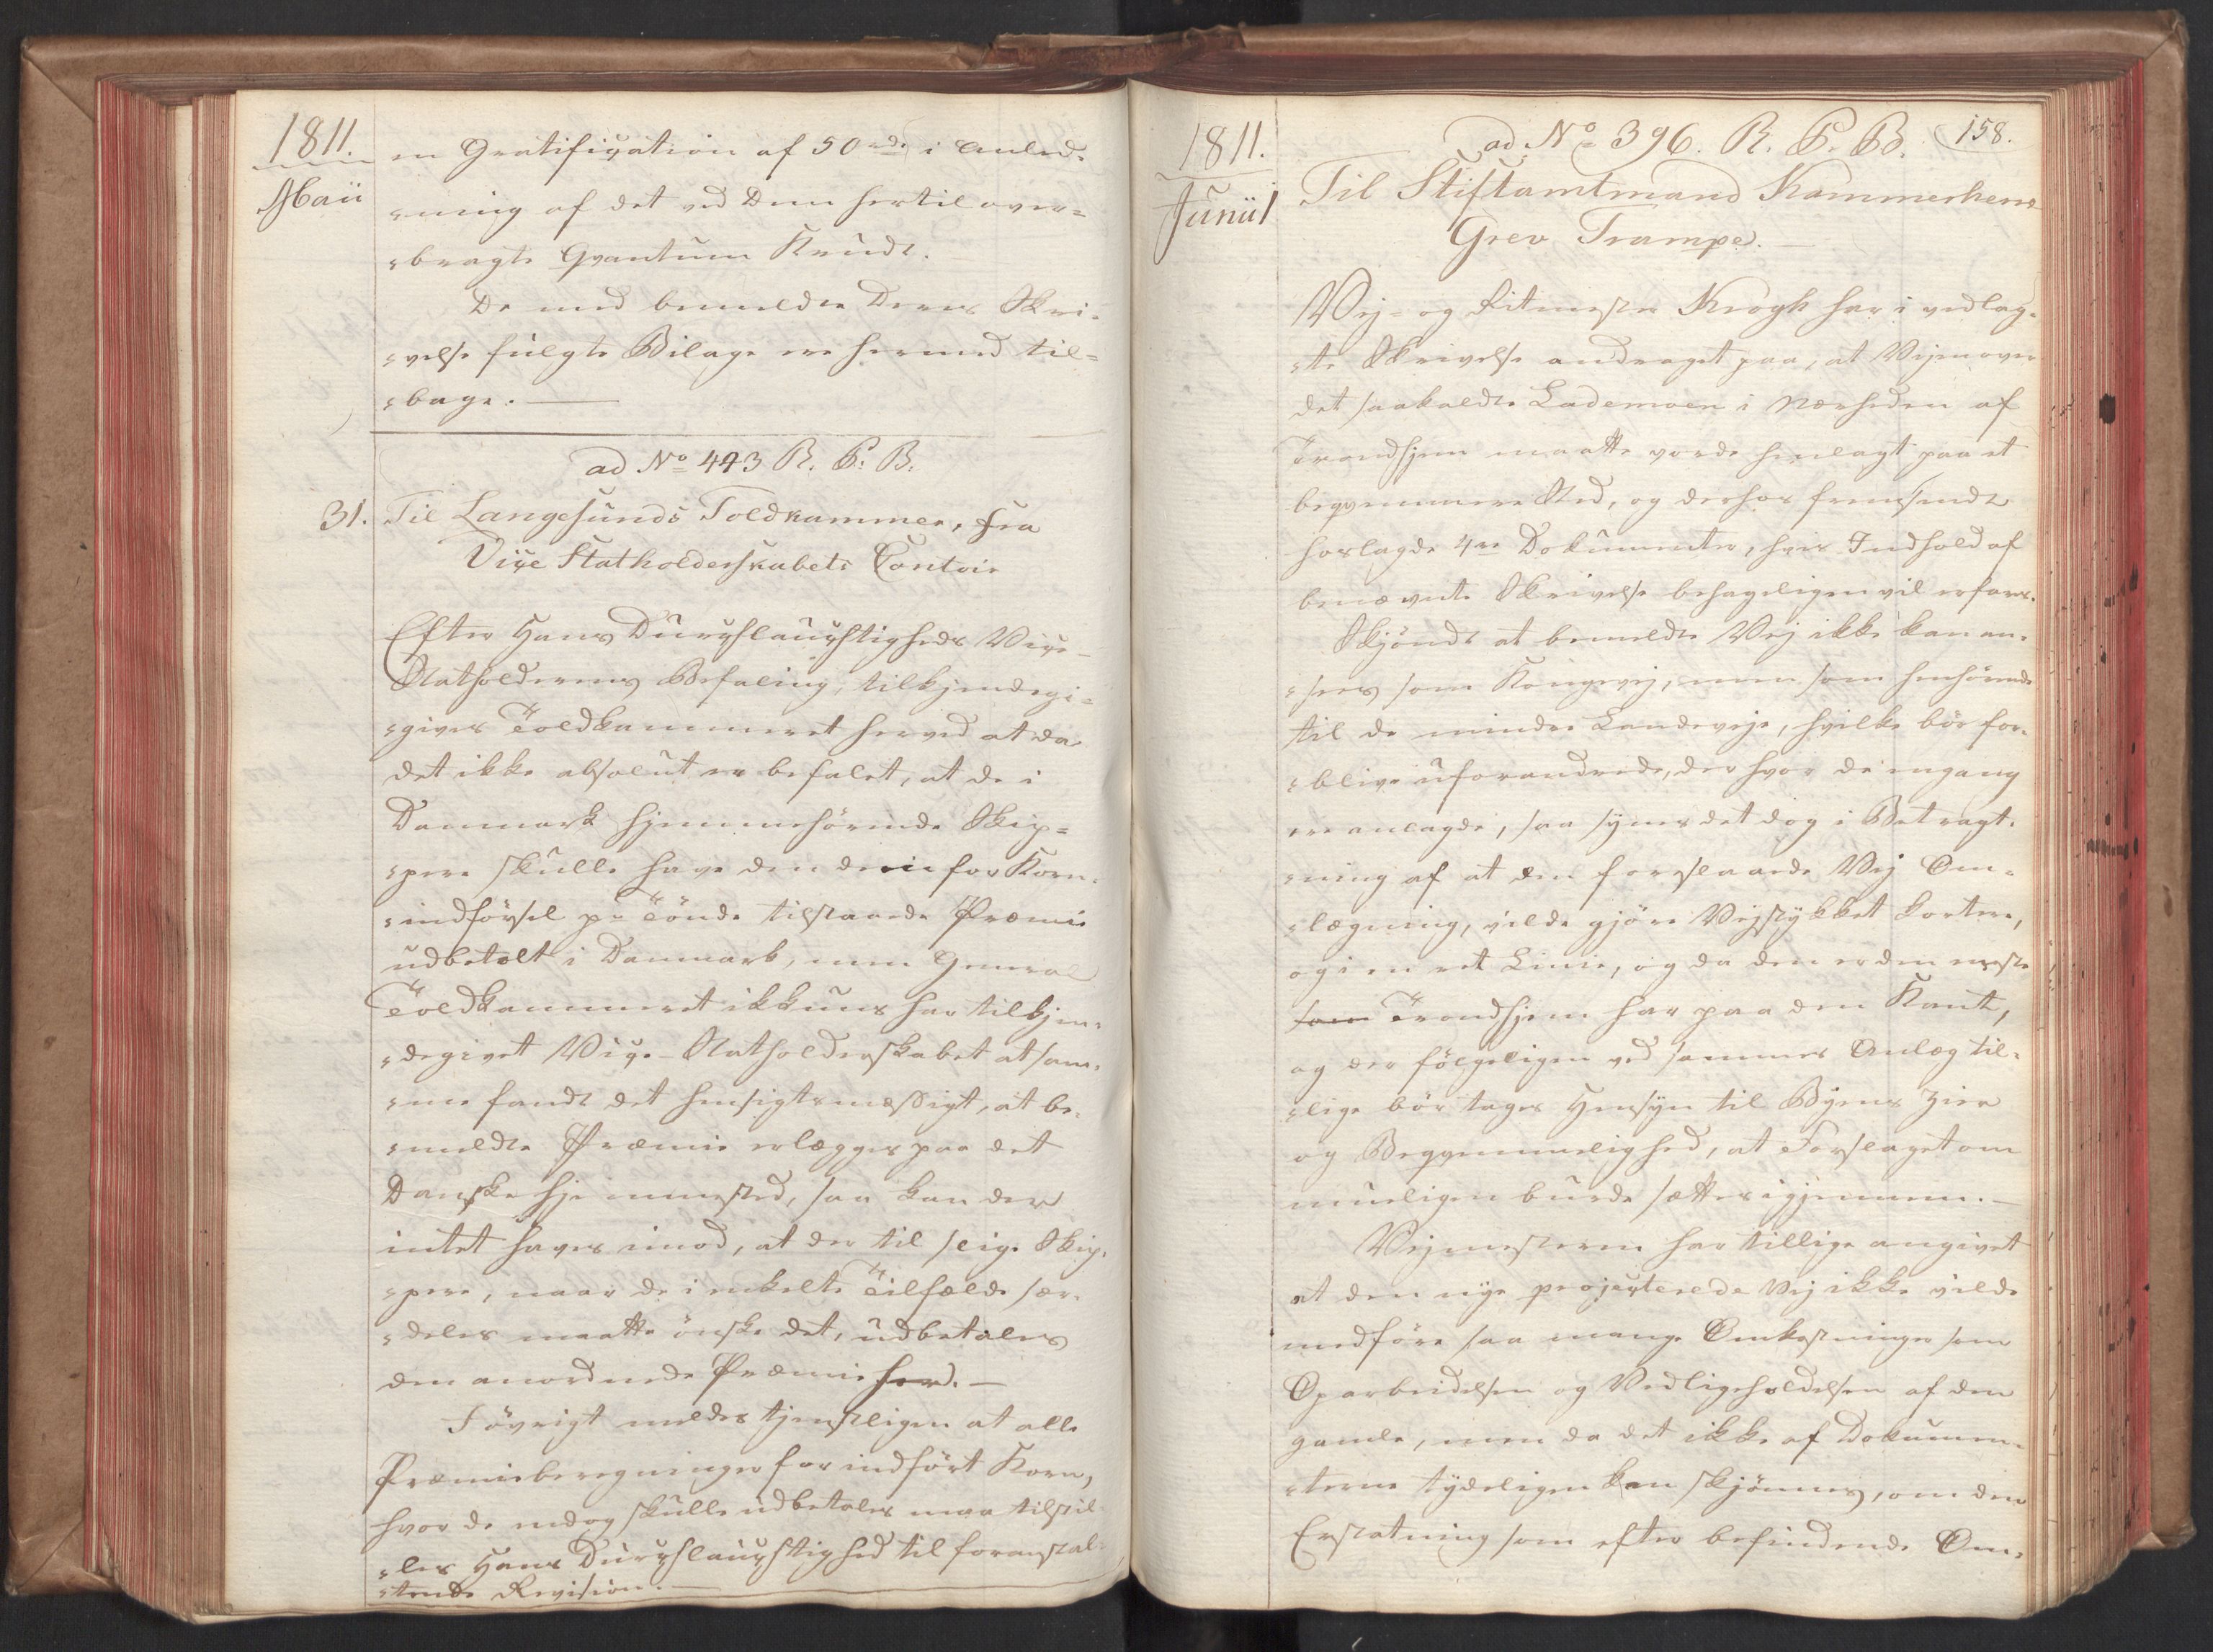 1811.
Maii
en Gratification af 50 rd. i Anled-
-ning af det ved Dem hertil over-
-bragte Qvantum Krudt.
De med bemeldte Deres Skri-
-velse fulgte Bilage ere hermed til-
-bage.
ad No 443 R. P. B.
31. Til Langesunds Toldkammer, fra
Vice Statholderskabets Contoir
Efter Hans Durchlauchtigheds Vice-
Statholderens Befaling, tilkjendegi-
-gives Toldkammeret herved at da
det ikke absolut er befalet, at de i
Danmark hjemmehörende Skip-
-pere skulle have den dem for Korn-
-indförsel pr Tönde tilstaaede Præmie
udbetalt i Danmark, men General
Toldkammeret ikkuns har tilkjen-
-degivet Vice-Statholderskabet at sam-
-me fandt det hensigtsmæssigt, at be-
-meldte Præmie erlægges paa det
Danske hjemmested, saa kan der
intet haves imod, at der til slige Skip-
-pere, naar de i enkelte Tilfælde sær-
-deles maatte önske det, udbetales
den anordnede Præmie her.
I övrigt meldes tjenstligen at alle
Præmieberegninger for indfört Korn,
hvor de endog skulle udbetales maa tilstil-
-les Hans Durchlauchtighed til foranstal-
-tende Revision.
1811.
Junii
158.
ad No 396. R. P. B.
Til Stiftamtmand Kammerherre
Grev Trampe.
Vej- og Ritmester Krogh har i vedlag-
-te Skrivelse andraget paa, at Vejen over
det saakaldte Lademoen i Nærheden af
Trondhjem maatte vorde henlagt paa et
beqvemmere Sted, og derhos fremsendt
hoslagde 4re Dokumenter, hvis Indhold af
benævnte Skrivelse behageligen vil erfares.
Skjöndt at bemeldte Vej ikke kan an-
-sees som Kongevej, men som henhörende
til de mindre Landeveje, hvilke bör for-
-blive uforandrede, der hvor de engang
ere anlagde, saa synes det dog i Betragt-
-ning af at den foreslaaede Vej Om-
-lægning, vilde gjöre Vejstykket kortere,
og i en ret Linie, og da den er den neste
som Trondhjem har paa den Kant,
og der fölgeligen ved sammes Anlæg til-
-lige bör tages Hensyn til Byens Zier
og Beqvemmelighed, at Forslaget om
mueligen burde sættes igjennem.
Vejmesteren har tillige angivet
at den nye projecterede Vej ikke vilde
medföre saa mange Omkostninger som
Oparbeidelsen og Vedligeholdelsen af den
gamle, men da det ikke af Dokumen-
-terne tydeligen kan skjönnes, om den
Erstatning som efter befindende Om-